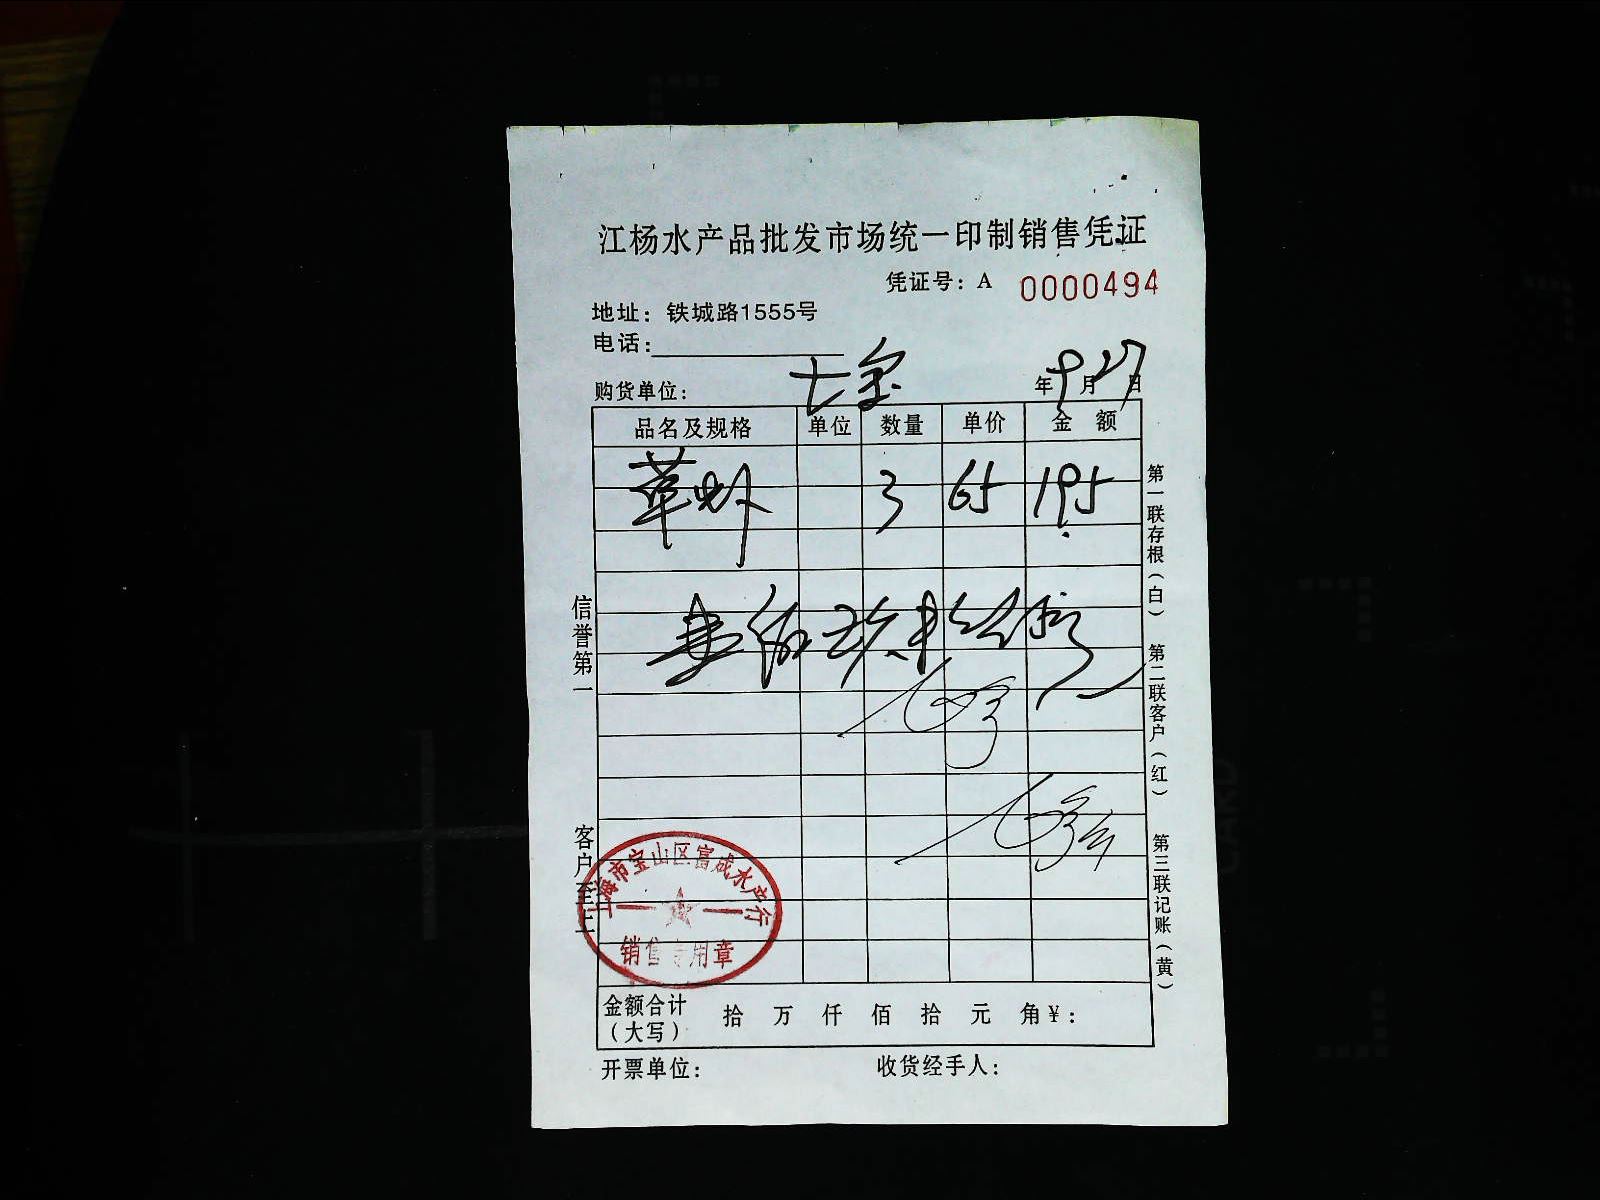 江杨水产品批发市场统一印制销售凭证
凭证号：A 0000494
地址：铁城路1555号
电话：
购货单位：七宝 年9月27日
品名及规格 单位 数量 单价 金额
草虾 3 65 195
信誉第一
客户至上
第一联存根（白） 第二联客户（红） 第三联记账（黄）
上海市宝山区富成水产行
销售专用章
金额合计（大写） 拾 万 仟 佰 拾 元 角 ¥：
开票单位： 收货经手人：